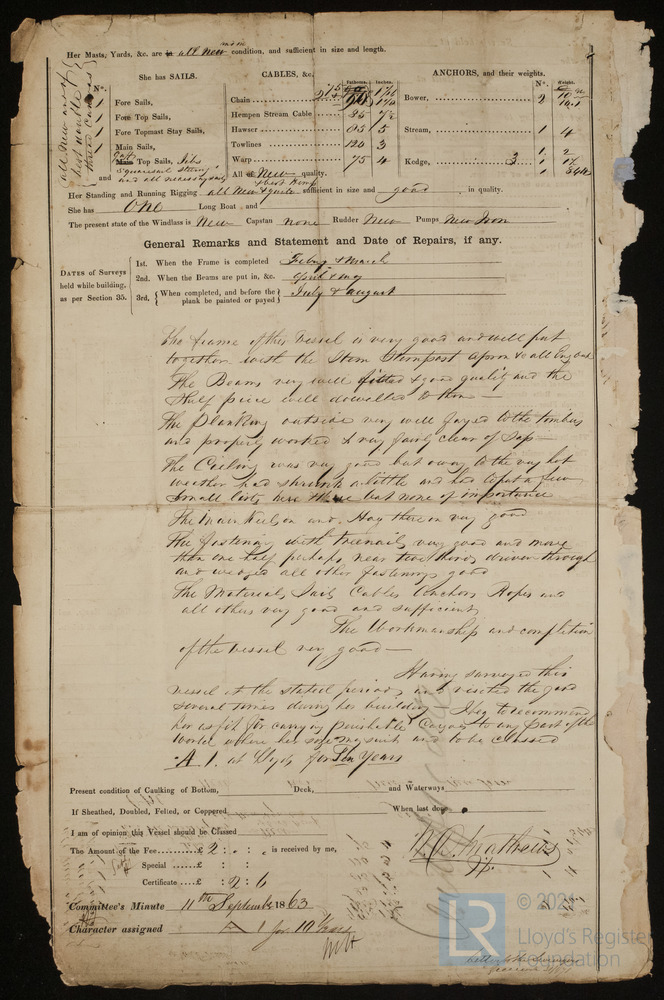 Her Masts, Yards, &c. are in all new and in condition, and sufficient in size and length.
She has SAILS.
CABLES, &c.
ANCHORS, and their weights.
N°.
Fathoms. Inches.
N°. Weight.
1 Fore Sails,
Chain
Bower, 2
1 Fore Top Sails,
Hempen Stream Cable
1 Fore Topmast Stay Sails,
Hawser 5
Stream, 1 4
1 Main Sails,
Towlines 120 3
Main Top Sails, Jibs
Warp 75 4
Kedge, 3 1 2
and
squaresail
and all necessary sails
All of New quality.
& best Hemp
all new and of best double thread canvas
Her Standing and Running Rigging all New & quite sufficient in size and good in quality.
She has One Long Boat and
The present state of the Windlass is New Capstan none Rudder New Pumps New Iron
General Remarks and Statement and Date of Repairs, if any.
DATES of Surveys held while building, as per Section 35.
1st. When the Frame is completed Feby & March
2nd. When the Beams are put in, &c. April & May
3rd, { When completed, and before the plank be painted or payed } July & August
The frame of this Vessel is very good and well put
together with the Stem Sternpost Apron & all
The Beams very well fitted & good quality and the
Half piece well dovetailed to them —
The Planking outside very well fayed to the timbers
and properly worked & very fairly clear of Sap —
The Ceiling was very good but owing to the very hot
weather had shrunk a little and had to put a few
small lists here & there but none of importance
The Main Keelson and thereon very good
The fastening with treenails very good and more
than one half perhaps near two thirds driven through
and wedged all other fastenings good
The Materials Sails Cables Anchors Ropes and
all others very good and sufficient
The Workmanship and completion
of the vessel very good —
Having surveyed this
vessel at the stated periods and visited the yard
several times during her building I beg to recommend
her as fit for carrying perishable Cargos to any part of the
world where her size may suit and to be classed
A 1. at Lloyds for Ten Years
Present condition of Caulking of Bottom, Deck, and Waterways
If Sheathed, Doubled, Felted, or Coppered When last done
I am of opinion this Vessel should be Classed
The Amount of the Fee £ 2 : . : . is received by me,
Special £ : :
Certificate £ : 2 : 6
Mathews
Committee's Minute 11th September 1863
Character assigned A 1 for 10 Years
LR
© 2021
Lloyd's Register
Foundation